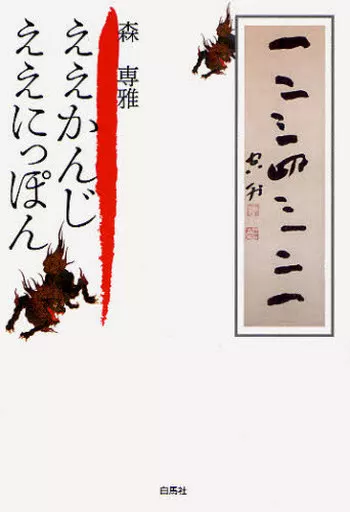 一二三四三二一
森 専雅
ええかんじ
ええにっぽん
白馬社